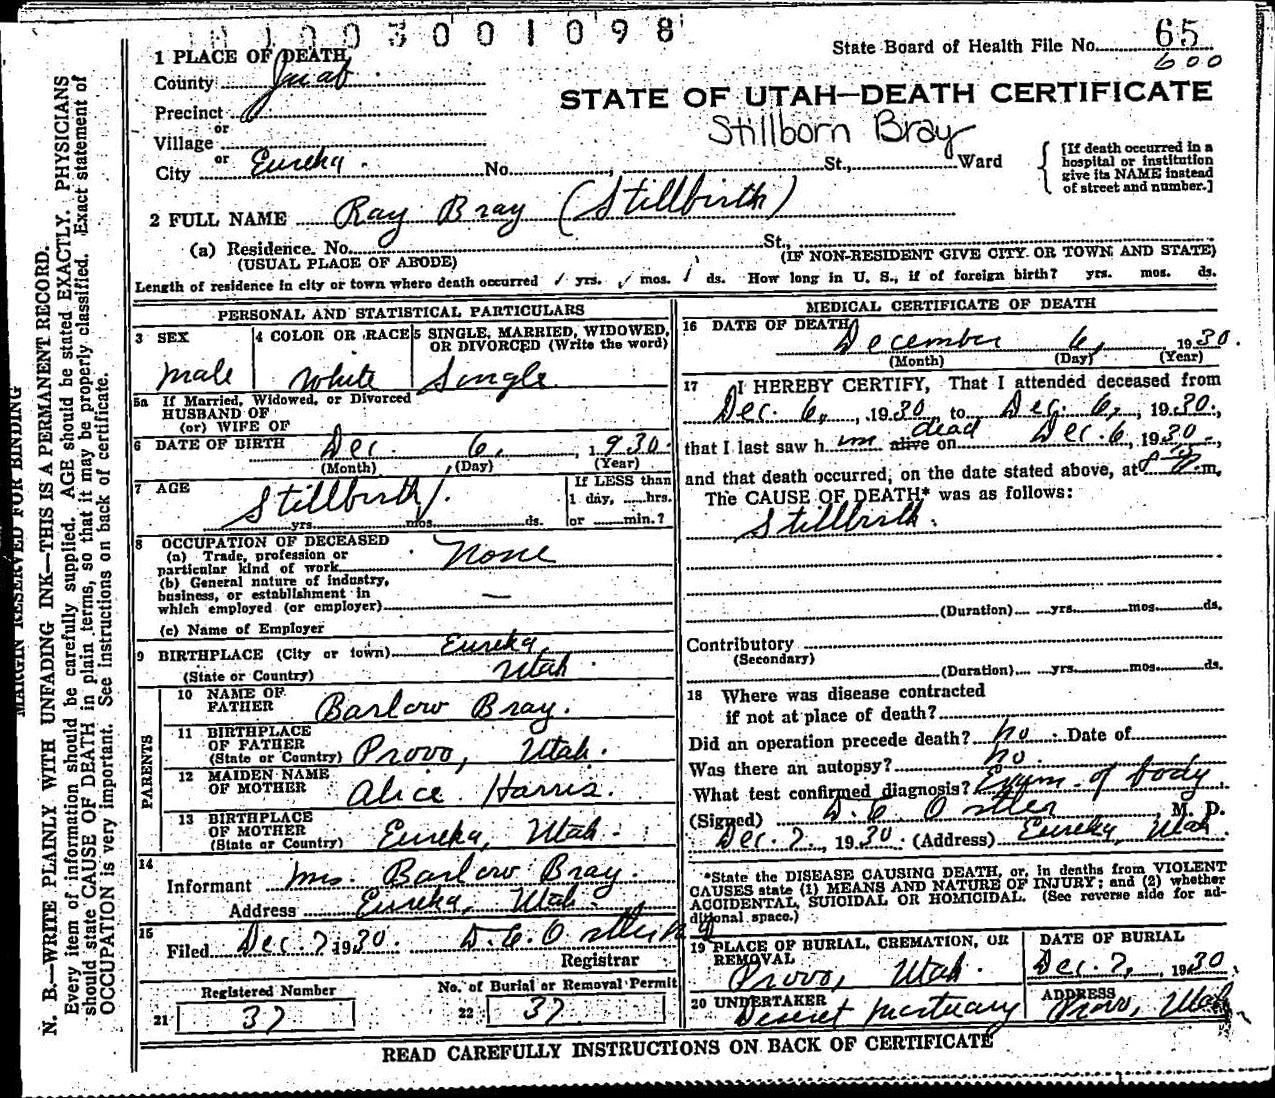 1003001098
State Board of Health File No. 65
600
1 PLACE OF DEATH
County Juab
STATE OF UTAH—DEATH CERTIFICATE
Precinct
or
Stillborn Bray
Village
or
City Eureka. No. , St., Ward
[If death occurred in a
hospital or institution
give its NAME instead
of street and number.]
2 FULL NAME Ray Bray (Stillbirth)
(a) Residence. No. St.,
(USUAL PLACE OF ABODE) (IF NON-RESIDENT GIVE CITY OR TOWN AND STATE)
Length of residence in city or town where death occurred / yrs. / mos. / ds. How long in U. S., if of foreign birth? yrs. mos. ds.
PERSONAL AND STATISTICAL PARTICULARS
3 SEX 4 COLOR OR RACE 5 SINGLE, MARRIED, WIDOWED,
OR DIVORCED (Write the word)
male White Single
5a If Married, Widowed, or Divorced
HUSBAND OF
(or) WIFE OF
6 DATE OF BIRTH Dec. 6, 1930.
(Month) (Day) (Year)
7 AGE If LESS than
Stillbirth. 1 day, hrs.
yrs. mos. ds. or min.?
8 OCCUPATION OF DECEASED
(a) Trade, profession or
particular kind of work None
(b) General nature of industry,
business, or establishment in
which employed (or employer) —
(c) Name of Employer
9 BIRTHPLACE (City or town) Eureka,
(State or Country) Utah.
PARENTS
10 NAME OF
FATHER Barlow Bray.
11 BIRTHPLACE
OF FATHER
(State or Country) Provo, Utah.
12 MAIDEN NAME
OF MOTHER Alice Harris.
13 BIRTHPLACE
OF MOTHER
(State or Country) Eureka, Utah.
14
Informant Mrs. Barlow Bray.
Address Eureka, Utah.
15
Filed Dec. 7 1930. D. C. Ostler
Registrar
Registered Number No. of Burial or Removal Permit
21 37 22 37
MEDICAL CERTIFICATE OF DEATH
16 DATE OF DEATH
December 6, 1930.
(Month) (Day) (Year)
17 I HEREBY CERTIFY, That I attended deceased from
Dec. 6, , 1930 to Dec. 6, , 1930.,
that I last saw him alive dead on Dec. 6, 1930.,
and that death occurred, on the date stated above, at m.
The CAUSE OF DEATH* was as follows:
Stillbirth.
(Duration) yrs. mos. ds.
Contributory
(Secondary)
(Duration) yrs. mos. ds.
18 Where was disease contracted
if not at place of death?
Did an operation precede death? no. Date of
Was there an autopsy? no.
What test confirmed diagnosis? Exam. of body
(Signed) D. C. Ostler, M. D.
Dec. 7., 1930. (Address) Eureka, Utah.
*State the DISEASE CAUSING DEATH, or, in deaths from VIOLENT
CAUSES state (1) MEANS AND NATURE OF INJURY; and (2) whether
ACCIDENTAL, SUICIDAL OR HOMICIDAL. (See reverse side for ad-
ditional space.)
19 PLACE OF BURIAL, CREMATION, OR
REMOVAL
Provo, Utah.
DATE OF BURIAL
Dec. 7, , 1930.
20 UNDERTAKER
Deseret Mortuary
ADDRESS
Provo, Utah
READ CAREFULLY INSTRUCTIONS ON BACK OF CERTIFICATE
MARGIN RESERVED FOR BINDING
N. B.—WRITE PLAINLY WITH UNFADING INK—THIS IS A PERMANENT RECORD.
Every item of information should be carefully supplied. AGE should be stated EXACTLY. PHYSICIANS
should state CAUSE OF DEATH in plain terms, so that it may be properly classified. Exact statement of
OCCUPATION is very important. See instructions on back of certificate.